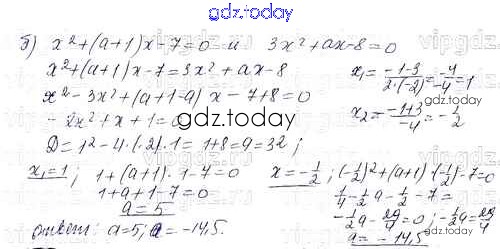 gdz.today
б) x²+(a+1)x-7=0 и 3x²+ax-8=0
x²+(a+1)x-7=3x²+ax-8
x²-3x²+(a+1-a)x-7+8=0
-2x²+x+1=0
D=1²-4·(-2)·1=1+8=9=3²;
x₁=(-1-3)/(2·(-2))=-4/-4=1
x₂=(-1+3)/-4=-1/2
gdz.today
x₁=1; 1+(a+1)·1-7=0
1+a+1-7=0
a=5
x=-1/2; (-1/2)²+(a+1)·(-1/2)-7=0
1/4-1/2a-1/2-7=
-1/2a-29/4=0; -1/2a=29/4
a=-14,5.
ответ: a=5; a=-14,5.
gdz.today